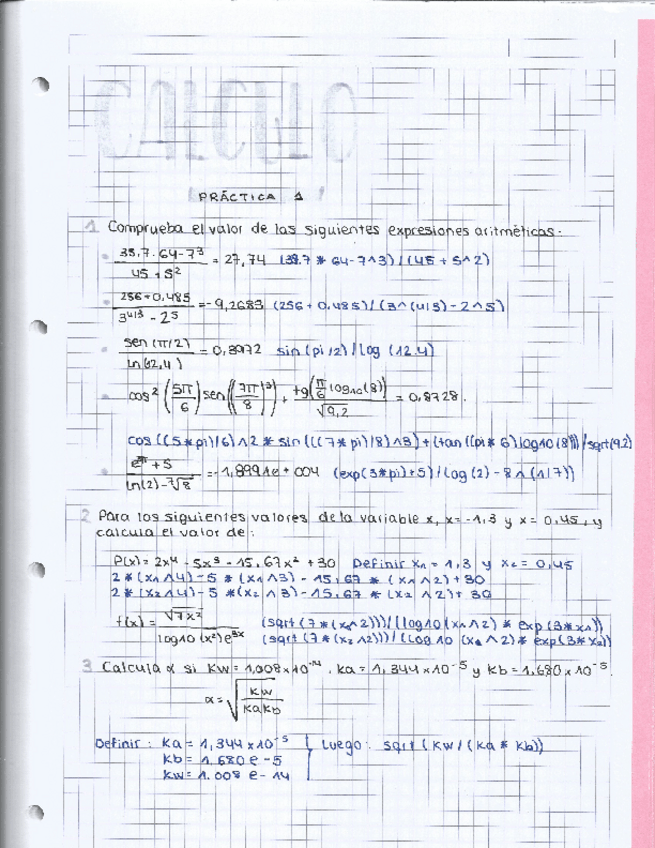 CALCULO
PRÁCTICA 1
1. Comprueba el valor de las siguientes expresiones aritméticas.
(38.7 · 64 - 7^3)/(45 + 5^2) = 27,74 (38.7 * 64-7^3)/(45 + 5^2)
(256+0,485)/(3^(4/3) - 2^5) = -9,2683 (256 + 0,485)/(3^(4/3) - 2^5)
sen (π/2)/ln(12,4) = 0,3972 sin (pi/2)/log (12.4)
cos² (5π/6) sen((7π/8)^3) + tg(π/6 log10(8))/√9,2 = 0,8728.
cos ((5*pi)/6)^2 * sin (((7*pi)/8)^3) + (tan ((pi*6) log10 (8)))/sqrt(9.2)
(e^3π + 5)/(ln(2) - ⁷√8) = -1,8991e+004 (exp(3*pi)+5)/(log (2) - 8^(1/7))
2 Para los siguientes valores de la variable x, x=-1,3 y x= 0,45, y
calcula el valor de:
P(x) = 2x⁴ - 5x³ - 15,67x² + 30 Definir x1 = 1,3 y x2 = 0,45
2*(x1^4)-5*(x1^3) - 15,67 * (x1^2)+30
2*(x2^4)-5*(x2^3)-15.67*(x2^2)+30
f(x) = √7x²/(log10(x²)e^3x) (sqrt(7*(x1^2)))/((log10(x1^2)*exp(3*x1))
(sqrt(7*(x2^2)))/((log10(x2^2)*exp(3*x2))
3 Calcula α si Kw = 1,008x10^-14, Ka = 1,344x10^-5 y Kb = 1,680x10^-5.
α = √(Kw/KaKb)
Definir: Ka = 1,344x10^-5 Luego: sqrt(Kw/(Ka * Kb))
Kb = 1.680 e-5
Kw = 1.008 e-14